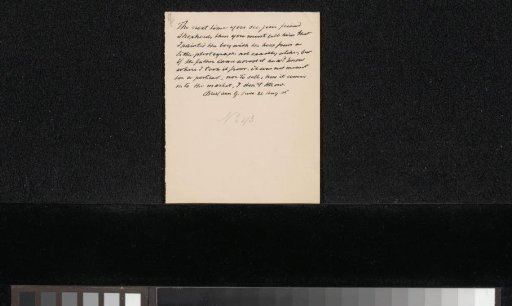 The next time you see your friend
Shepherd, then you must tell him that
I painted the boy with the hens from a
little photograph not exactly alike, but
if the father came across it he'd know
where I took it from. it was not meant
for a portrait, nor to sell, how it came
into the market, I don't know